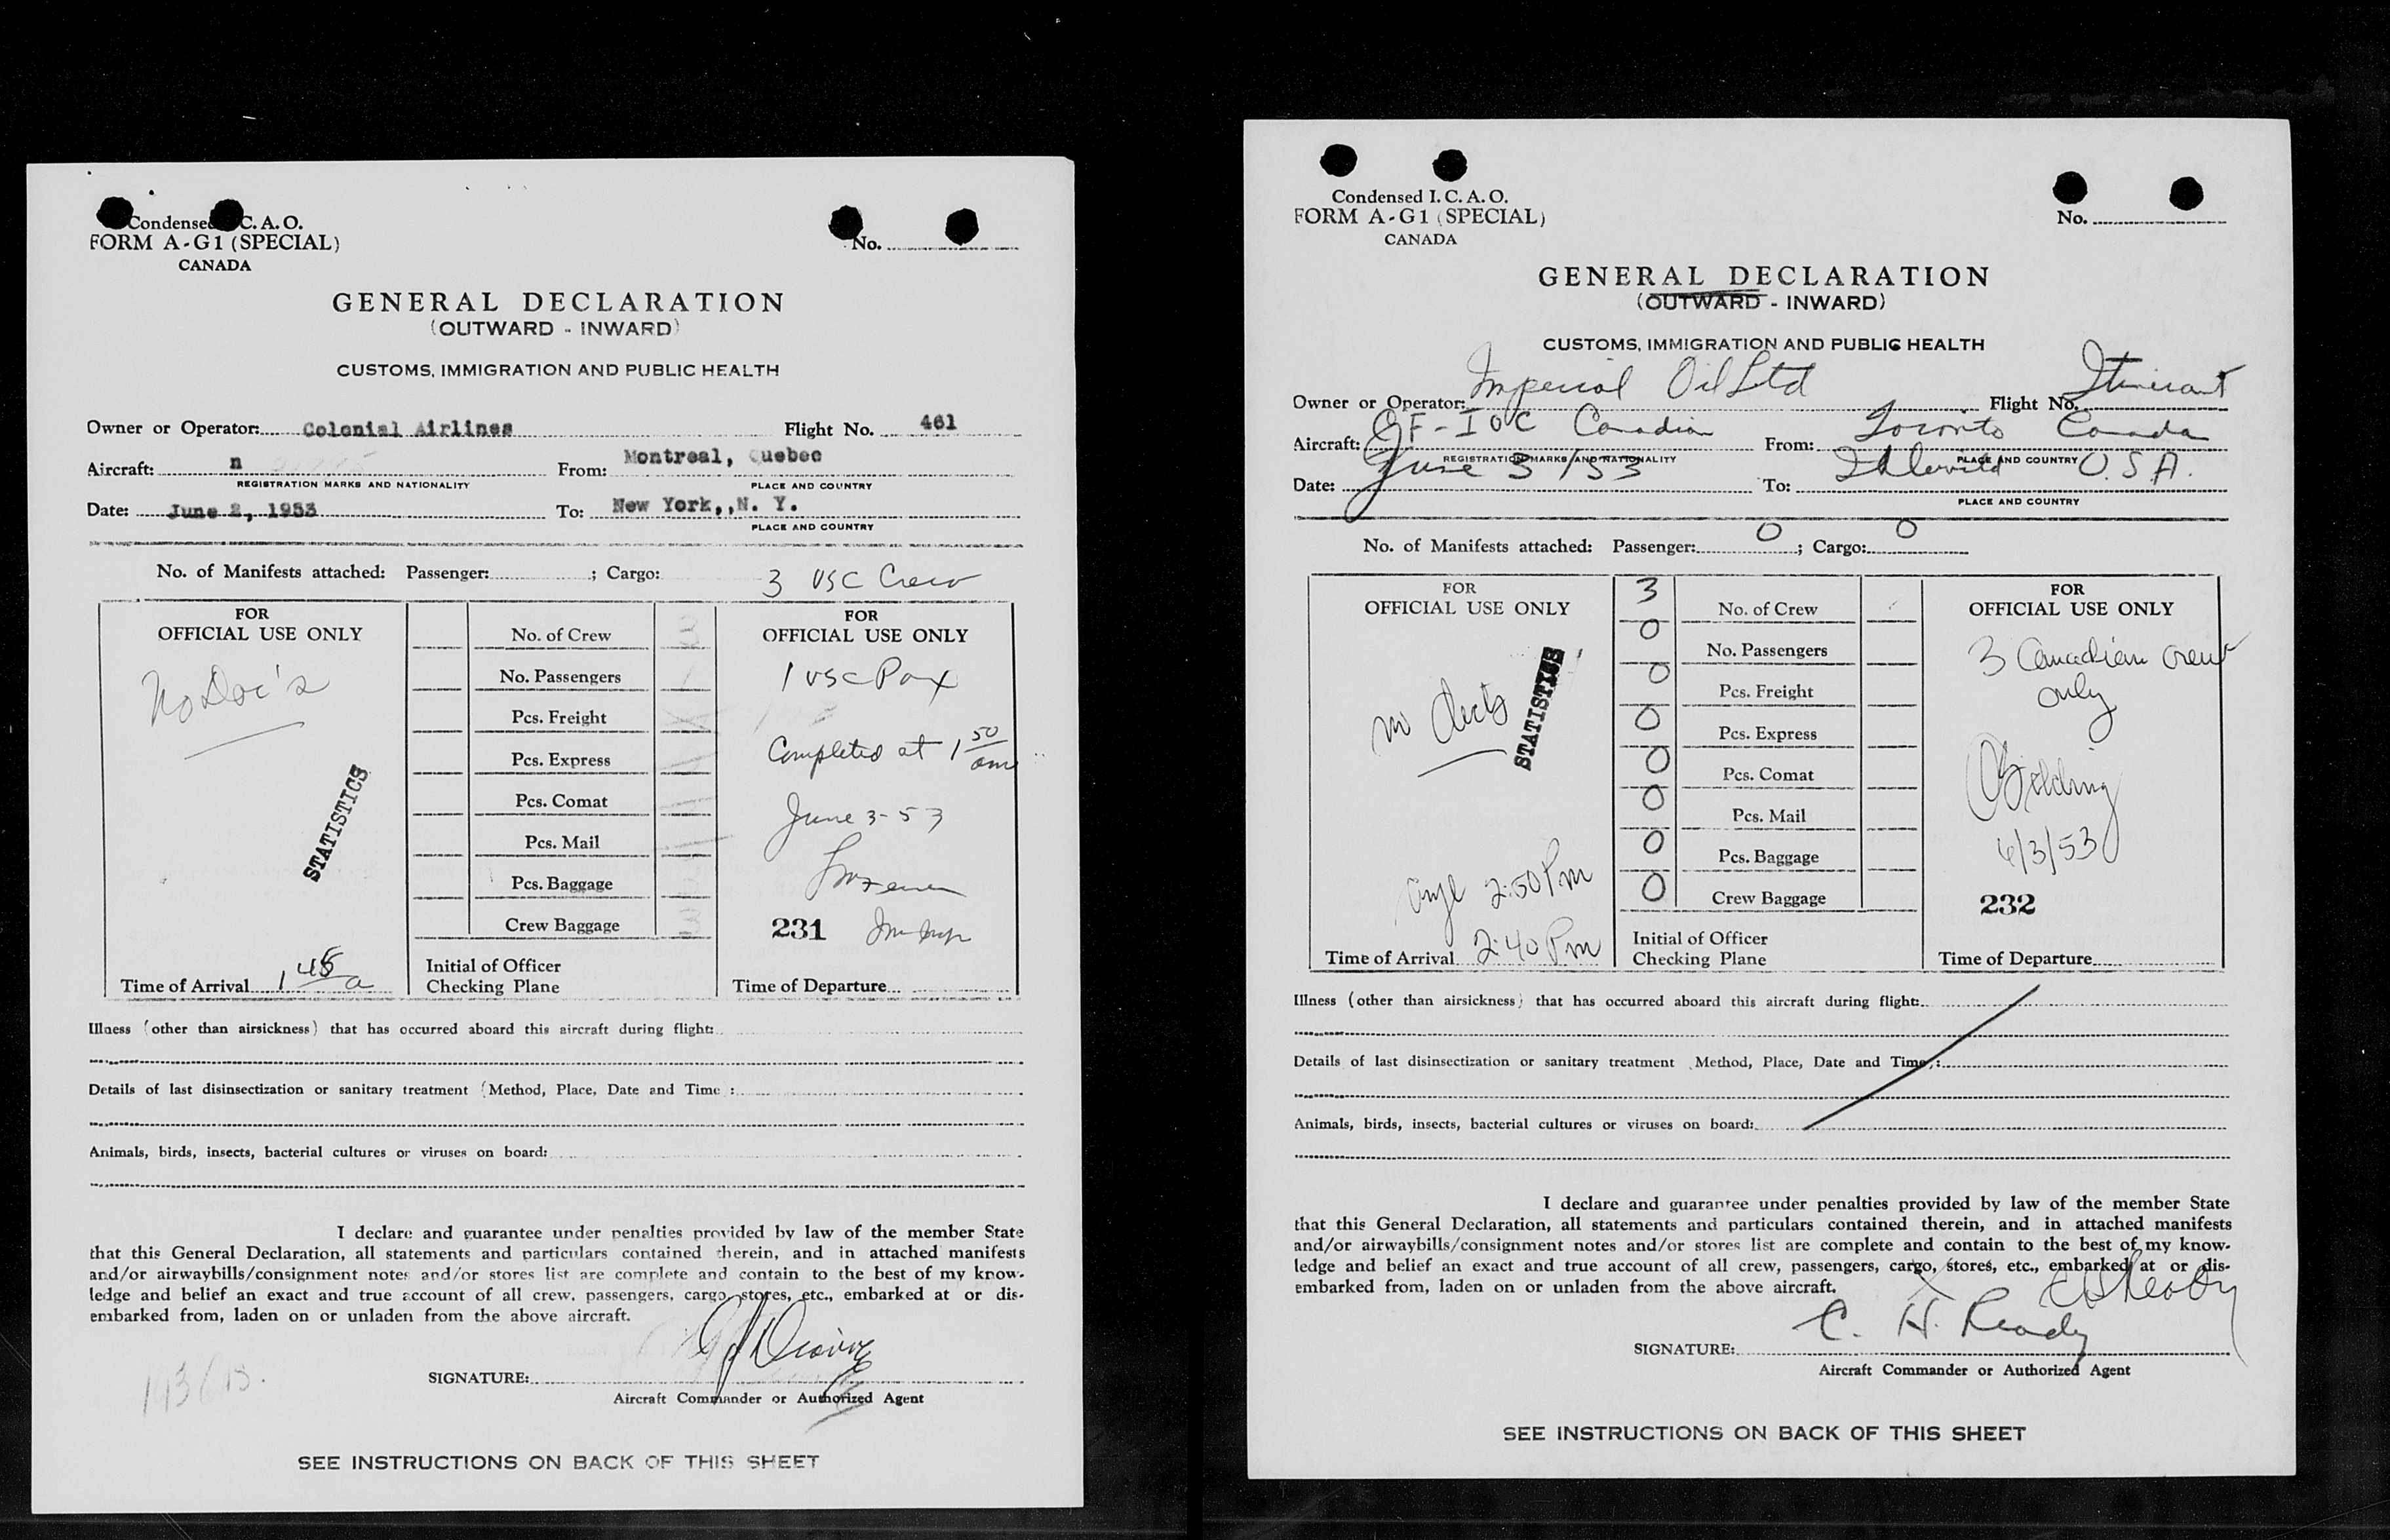 Condensed I.C.A.O.
FORM A-G1 (SPECIAL)
CANADA
No.
GENERAL DECLARATION
(OUTWARD - INWARD)
CUSTOMS, IMMIGRATION AND PUBLIC HEALTH
Owner or Operator: Colonial Airlines Flight No. 461
Aircraft: n From: Montreal, Quebec
REGISTRATION MARKS AND NATIONALITY PLACE AND COUNTRY
Date: June 2, 1953 To: New York,,N. Y.
PLACE AND COUNTRY
No. of Manifests attached: Passenger: ; Cargo: 3 USC Crew
FOR OFFICIAL USE ONLY
No Doc's
STATISTICS
Time of Arrival 1 45 a
No. of Crew 3
No. Passengers 1
Pcs. Freight
Pcs. Express
Pcs. Comat
Pcs. Mail
Pcs. Baggage
Crew Baggage 3
Initial of Officer
Checking Plane
FOR
OFFICIAL USE ONLY
1 USC Pax
Completed at 1 50 am
June 3-53
231 Imm Insp
Time of Departure
Illness (other than airsickness) that has occurred aboard this aircraft during flight:
Details of last disinsectization or sanitary treatment (Method, Place, Date and Time :
Animals, birds, insects, bacterial cultures or viruses on board:
I declare and guarantee under penalties provided by law of the member State
that this General Declaration, all statements and particulars contained therein, and in attached manifests
and/or airwaybills/consignment notes and/or stores list are complete and contain to the best of my know-
ledge and belief an exact and true account of all crew, passengers, cargo, stores, etc., embarked at or dis-
embarked from, laden on or unladen from the above aircraft.
SIGNATURE:
Aircraft Commander or Authorized Agent
SEE INSTRUCTIONS ON BACK OF THIS SHEET
Condensed I.C.A.O.
FORM A-G1 (SPECIAL)
CANADA
No.
GENERAL DECLARATION
(OUTWARD - INWARD)
CUSTOMS, IMMIGRATION AND PUBLIC HEALTH
Owner or Operator: Imperial Oil Ltd Flight No. Itinerant
Aircraft: CF-IOC Canadian From: Toronto Canada
REGISTRATION MARKS AND NATIONALITY PLACE AND COUNTRY
Date: June 3/53 To: Idlewild U.S.A.
PLACE AND COUNTRY
No. of Manifests attached: Passenger: 0 ; Cargo: 0
FOR
OFFICIAL USE ONLY
no
STATISTICS
2:50 Pm
Time of Arrival 2:40 Pm
3 No. of Crew
0 No. Passengers
0 Pcs. Freight
0 Pcs. Express
0 Pcs. Comat
0 Pcs. Mail
0 Pcs. Baggage
0 Crew Baggage
Initial of Officer
Checking Plane
FOR
OFFICIAL USE ONLY
3 Canadian crew
only
6/3/53
232
Time of Departure
Illness (other than airsickness) that has occurred aboard this aircraft during flight:
Details of last disinsectization or sanitary treatment Method, Place, Date and Time):
Animals, birds, insects, bacterial cultures or viruses on board:
I declare and guarantee under penalties provided by law of the member State
that this General Declaration, all statements and particulars contained therein, and in attached manifests
and/or airwaybills/consignment notes and/or stores list are complete and contain to the best of my know-
ledge and belief an exact and true account of all crew, passengers, cargo, stores, etc., embarked at or dis-
embarked from, laden on or unladen from the above aircraft.
SIGNATURE: C. H. Ready
Aircraft Commander or Authorized Agent
SEE INSTRUCTIONS ON BACK OF THIS SHEET